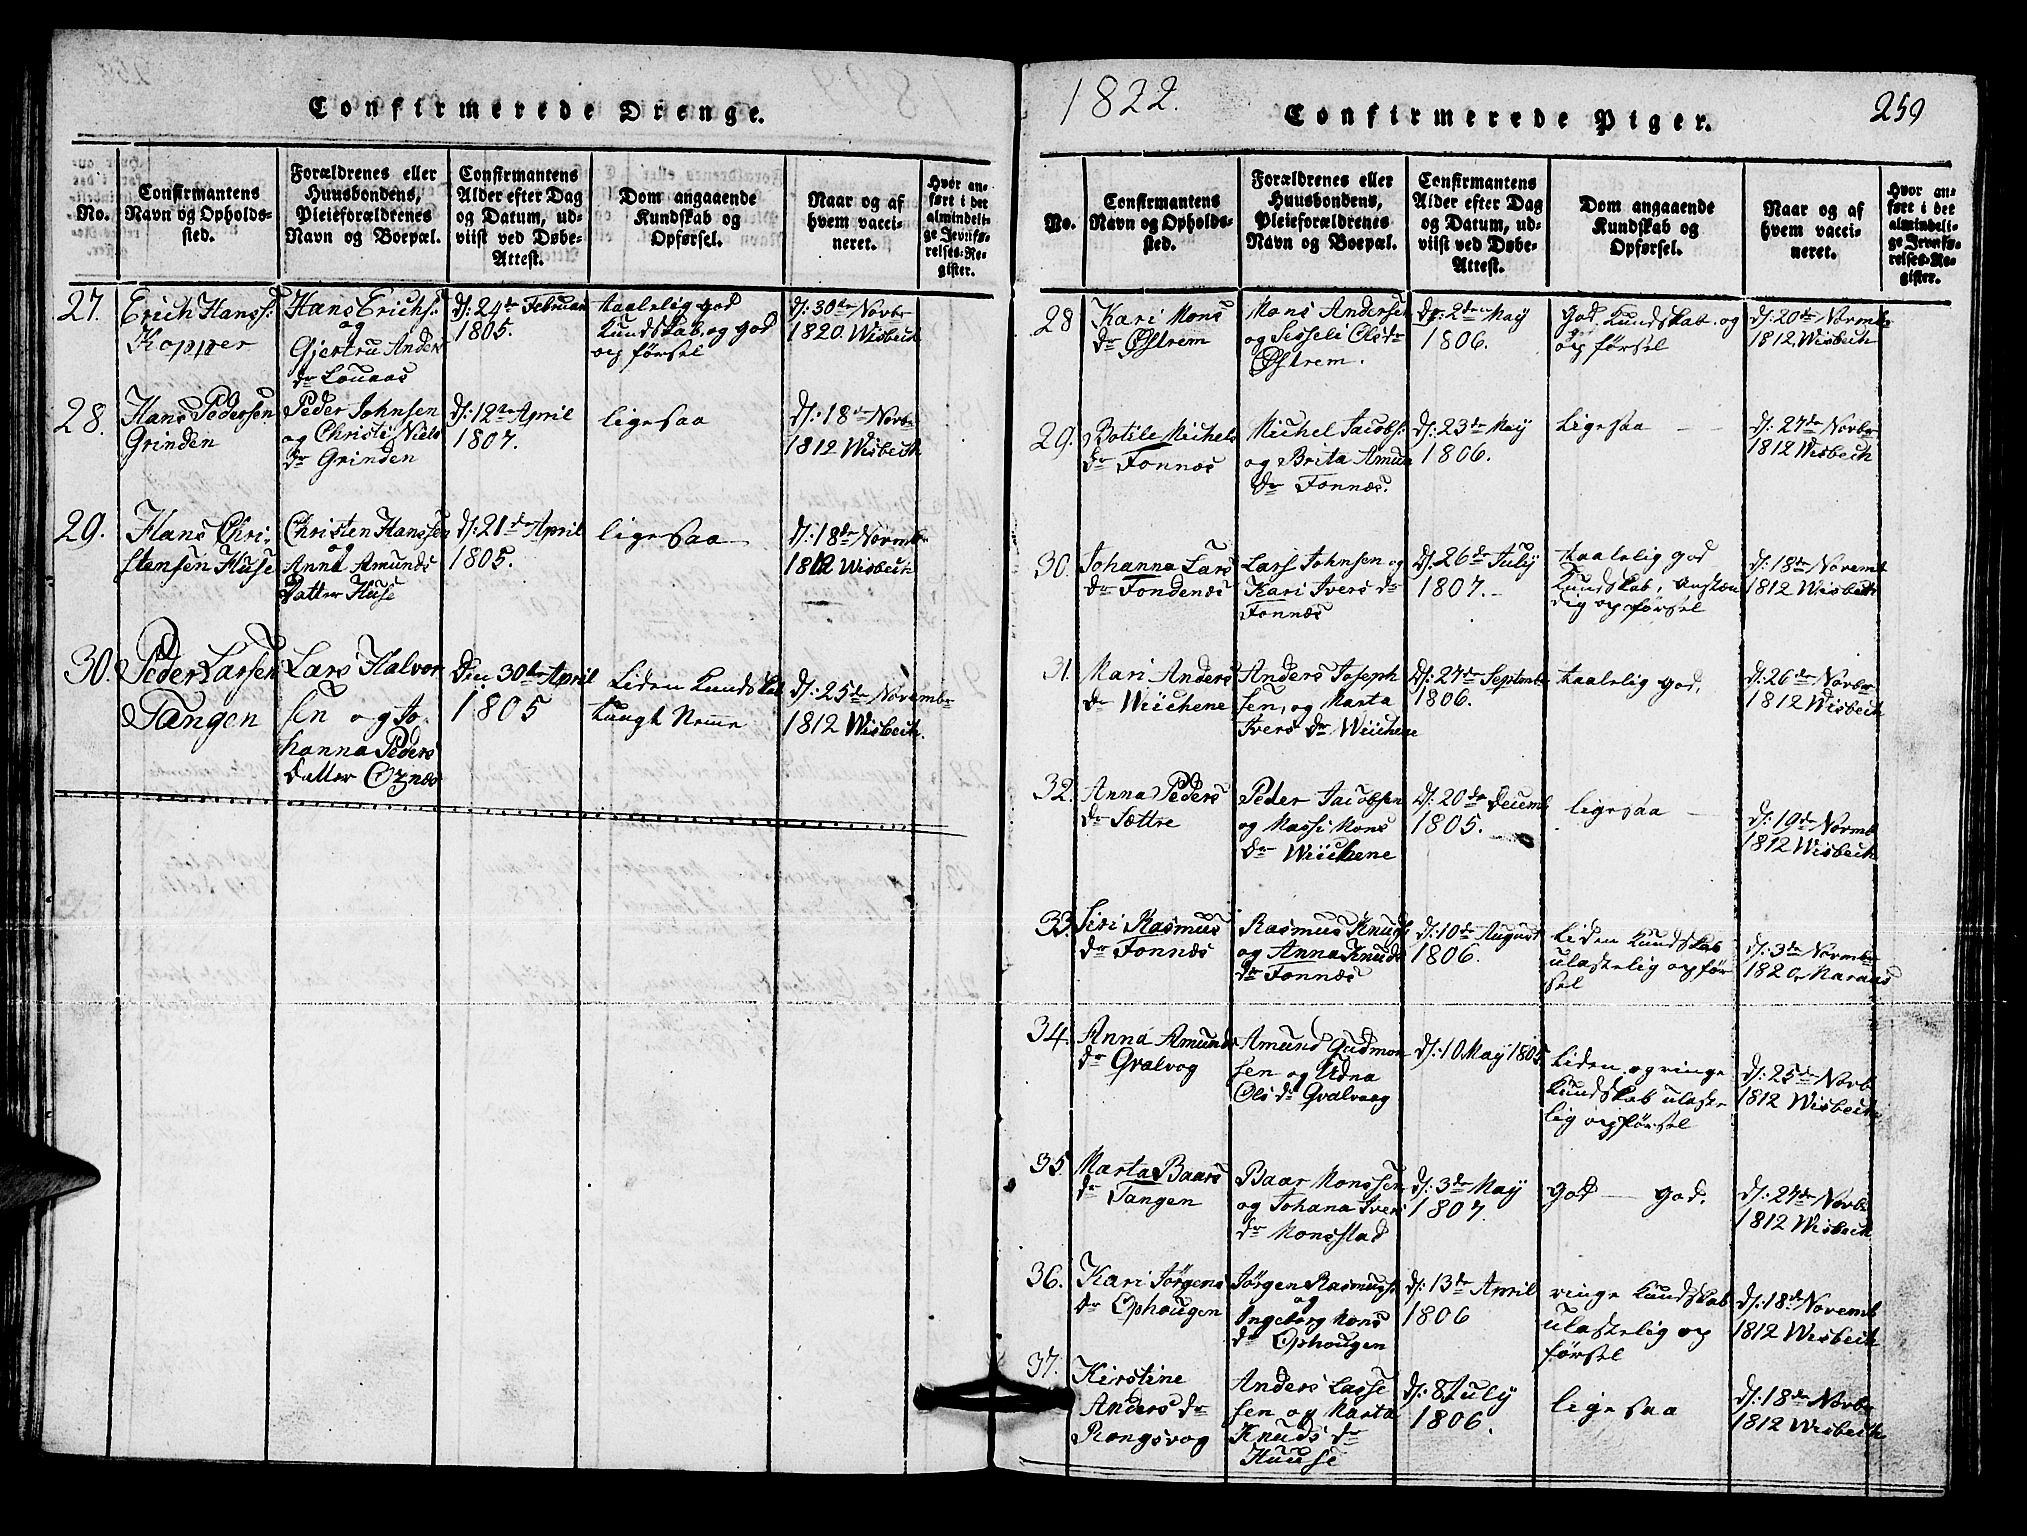 Confirmerede Drenge.
No.
Confirmantens
Navn og Opholds-
sted.
Forældrenes eller
Huusbondens,
Pleieforældrenes
Navn og Boepæl.
Confirmantens
Alder efter Dag
og Datum, ud-
viist ved Døbe-
Attest.
Dom angaaende
Kundskab og
Opførsel.
Naar og af
hvem vacci-
neret.
Hvor an-
ført i det
almindeli-
ge Jevnfø-
relses-Re-
gister.
27.
Erich Hanss:
Kopper
Hans Erichs:
og
Gjertru Anders
dr Louaas
d: 24de Februar
1805.
taalelig god
Kundskab og god
opførsel
d: 30te Novbr
1820. Wisbech
28.
Hans Pedersen
Grinden
Peder Johnsen
og Christi Niels
dr Grinden
d: 12te April
1807.
ligesaa
d: 18de Novbr
1812 Wisbech
29.
Hans Chri-
stensen Huse
Christen Hanssen
og
Anna Amunds
Datter Huse
d: 21de April
1805.
ligesaa
d: 18de Novmbr
1812 Wisbech
30.
Peder Larsen
Tangen
Lars Halvor
sen og Jo-
hanna Peders
datter Oznæs
Den 30te April
1805
Liden Kundskab
tungt Nemme
d: 25de Novembr
1812 Wisbech.
1822.
Confirmerede Piger.
259
No.
Confirmantens
Navn og Opholds-
sted.
Forældrenes eller
Huusbondens,
Pleieforældrenes
Navn og Boepæl.
Confirmantens
Alder efter Dag
og Datum, ud-
viist ved Døbe-
Attest.
Dom angaaende
Kundskab og
Opførsel.
Naar og af
hvem vacci-
neret.
Hvor an-
ført i det
almindeli-
ge Jevnfø-
relses-Re-
gister.
28
Kari Mons
dr Østrem
Mons Andersen
og Sisseli Olsdr
Østrem.
d: 2de May
1806.
god Kundskab og
opførsel
d: 20de Novmbr
1812 Wisbech
29.
Botile Michels
dr Fonnæs
Michel Jacobs:
og Brita Amun
dr Fonnæs.
d: 23de May
1806.
ligesaa
d: 27de Novbr
1812 Wisbech
30.
Johanna Lars
dr Fondenæs
Lars Johnsen og
Kari Ivers dr
Fonnæs
d: 26de July
1807.
taalelig god
Kundskab, anstæn
dig opførsel
d: 18de Novemb
1812 Wisbech
31.
Mari Anders
dr Wiichene
Anders Joseph
sen, og Marta
Ivers dr Wiichene
d: 27de Septembr
1806.
taalelig god.
d: 26de Novbr
1812 Wisbech
32.
Anna Peders
dr Sættre
Peder Jacobsen
og Massi Mons
dr Wiichene
d: 20de Decemb
1805.
ligesaa
d: 19de Novmb
1812 Wisbech
33.
Siri Rasmus
dr Fonnæs
Rasmus Knuds
og Anna Knuds
dr Fonnæs
d: 10de August
1806.
Liden Kundskab
ulastelig opfør
sel
d: 3de Novmbr
1820. Maraas
34.
Anna Amunds
dr Qvalvog
Amund Gudmon
sen og Udna
Ols dr Qvalvaag
d: 10 May 1805
liden og ringe
Kundskab ulaste-
lig opførsel
d: 25de Novb
1812 Wisbech
35.
Marta Baars
dr Tangen
Baar Monssen
og Johana Ivers
dr Monsstad
d: 3de May
1807.
god - god.
d: 27de Novbr
1812 Wisbech
36.
Kari Jörgens
dr Ophougen
Jörgen Rasmuss:
og
Ingeborg Mons
dr Ophougen
d: 13de April
1806
ringe Kundskab
ulastelig op
førsel
d: 18de Novemb
1812 Wisbech
37.
Kirstine
Anders dr
Rongsvog
Anders Lasse
sen og Marta
Knuds dr
Huuse
d: 8 July
1806.
ligesaa
d: 18de Novbr
1812 Wisbech